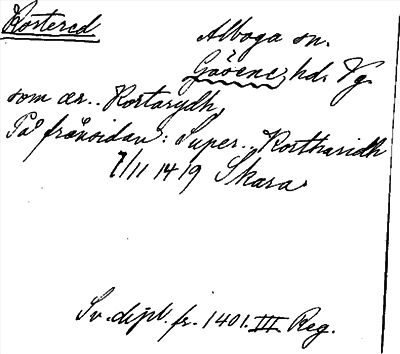 Kostered
Alboga sn.
Gäsene hd. Vg.
som ær.. Kortarydh
På frånsidan: Super.. Kortharidh
7/11 1419 Skara
Sv. dipl. fr. 1401. III Reg.